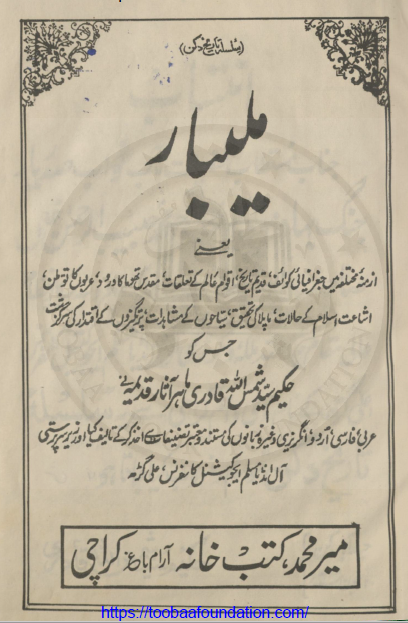 (سلسلہ تاریخ دکن)
ملیبار
یعنے
ازمنۂ مختلفہ میں جغرافیائی کوائف، قدیم تاریخ، اقوام عالم کے تعلقات، مقدس تھوما کا ورود، عربوں کا توطن،
اشاعت اسلام کے حالات، ماپلا کی تحقیق، سیاحوں کے مشاہدات، پرتگیزوں کے اقتدار کی سرگزشت
جس کو
حکیم سید شمس اللہ قادری ماہر آثار قدیمہ نے
عربی، فارسی، اُردو، انگریزی وغیرہ زبانوں کی مستند و معتبر تصنیفات سے اخذ کرکے تالیف کیا اور زیر سرپرستی
آل انڈیا مسلم ایجوکیشنل کانفرنس، علی گڑھ
میر محمد، کتب خانہ آرام باغ، کراچی
https://toobaafoundation.com/